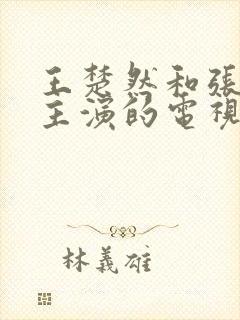 王楚然和張
主演的電視
林義雄